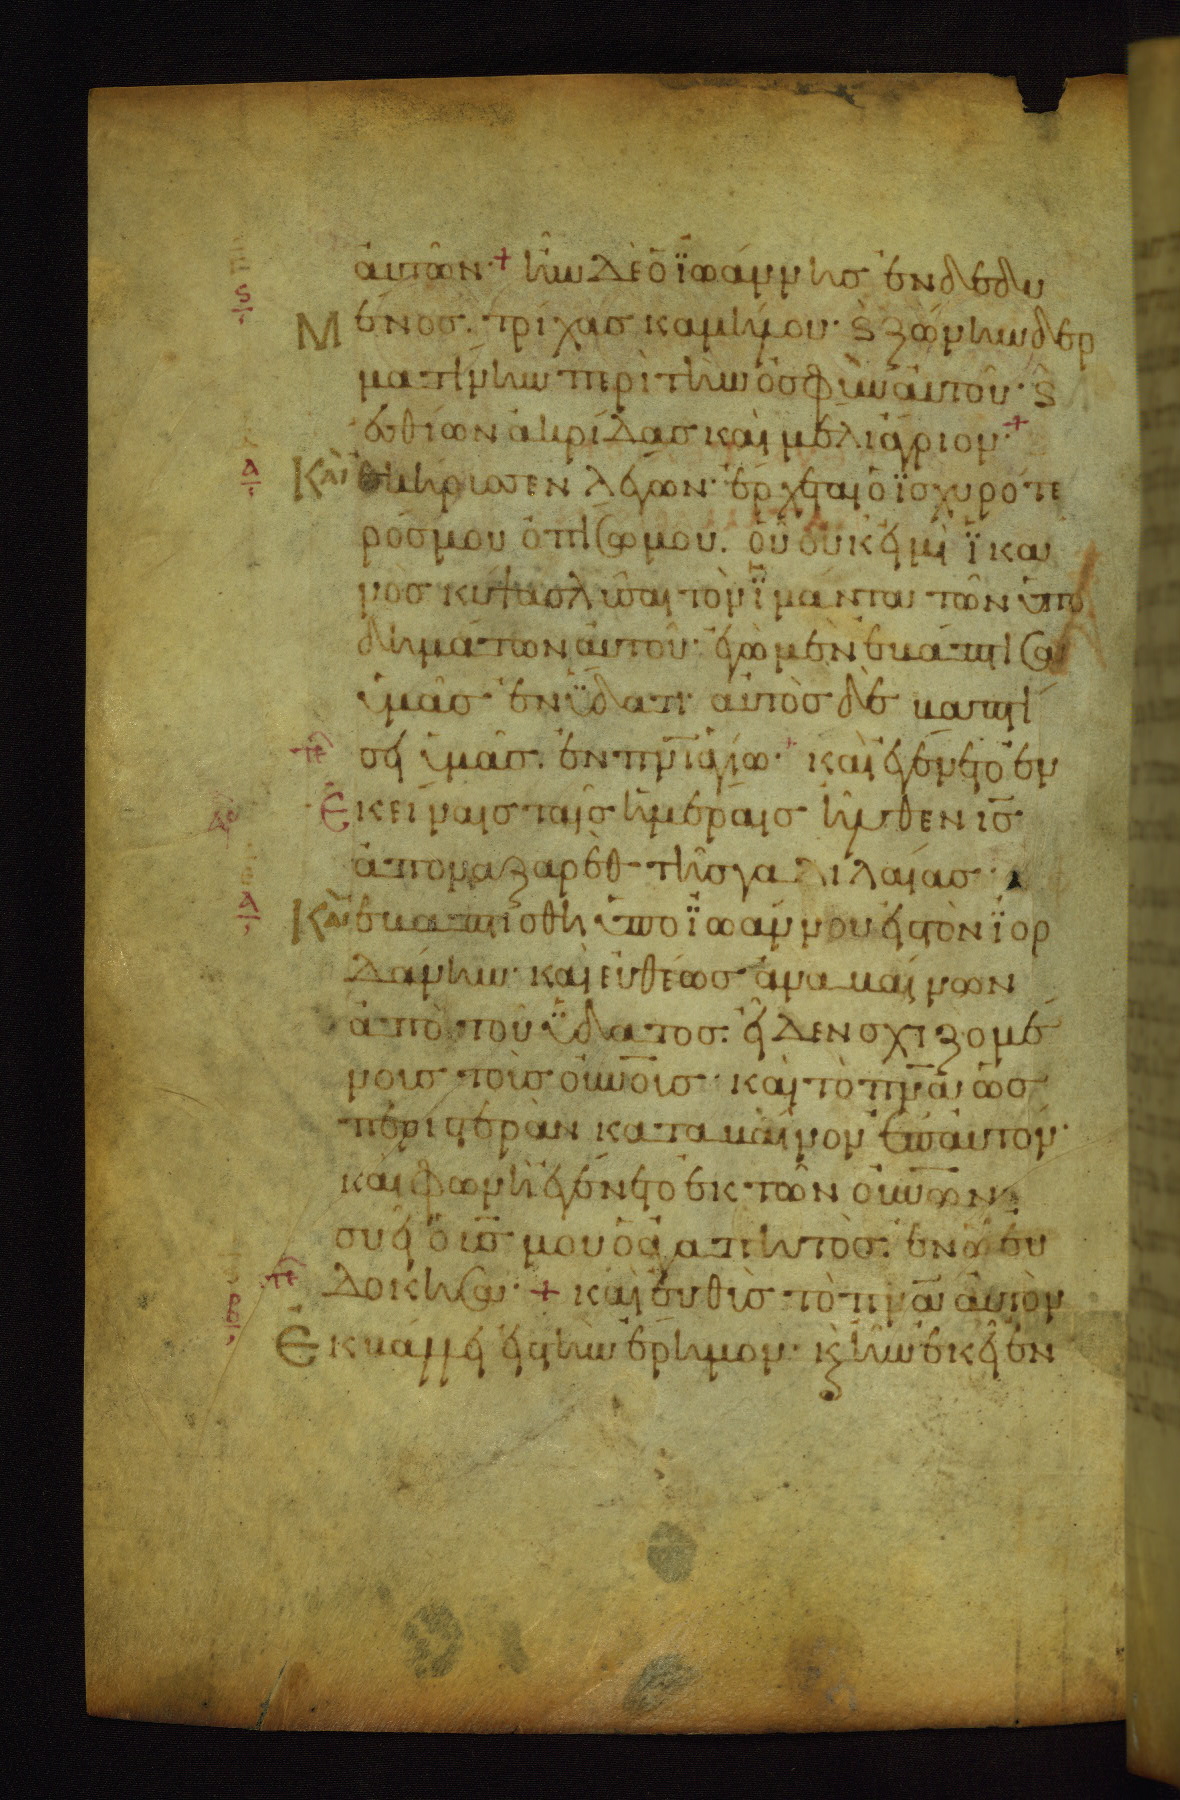 αὐτῶν·+ ἦν δὲ ὁ ϊωάννης ἐνδεδυ
Μένος. τρίχας καμήλου· ϗ ζώνην δερ
ματίνην περὶ τὴν ὀσφὺν αὐτοῦ· ϗ
ἐσθίων ἀκρίδας καὶ μέλι ἄγριον·+
Καὶ ἐκήρυσσεν λέγων· ἔρχεται ὁ ϊσχυρότε
ρός μου ὀπίσω μου. οὗ οὐκ εἰμὶ ϊκα
νὸς κύψας λῦσαι τὸν ϊμάντα τῶν ὑπο
δημάτων αὐτοῦ· ἐγὼ μὲν ἐβάπτισα
ὑμᾶς ἐν ϋδατι· αὐτὸς δὲ βαπτί
σει ὑμᾶς. ἐν πνι ἁγίω·+ καὶ ἐγένετο ἐν
Ἐκείναις ταῖς ἡμέραις ἦλθεν ις
ἀπο ναζαρὲθ τῆς γαλιλαίας·
Καὶ ἐβαπτίσθη ὑπο ϊωάννου εἰς τὸν ϊορ
δάνην· καὶ εὐθέως ἀναβαίνων
ἀπὸ τοῦ ϋδατος. εἶδεν σχιζομέ
νους τοὺς οὐνους· καὶ τὸ πνα ὡς
περιστερὰν καταβαῖνον ἐπ αὐτόν·
καὶ φωνὴ ἐγένετο ἐκ τῶν οὐνων·
συ εἶ ὁ υς μου ὁ ἀγαπητὸς. ἐν ᾧ εὐ
δόκησα·+ καὶ εὐθὺς τὸ πνα αὐτὸν
Ἐκβάλλει εἰς τὴν ἔρημον· ϗ ἦν ἐκεῖ ἐν